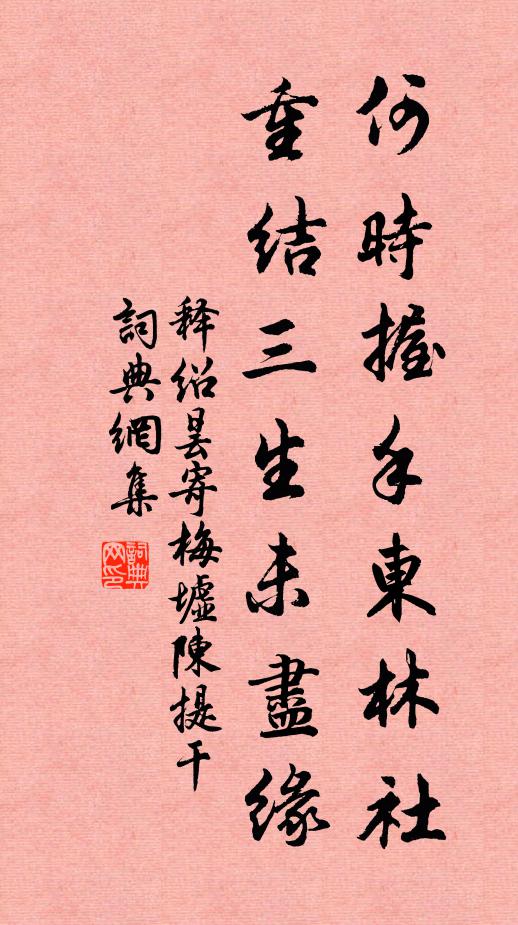 何時握手東林社
重結三生未盡緣
释紹曇寄梅墟陳提干
詞典網集
詞典網印